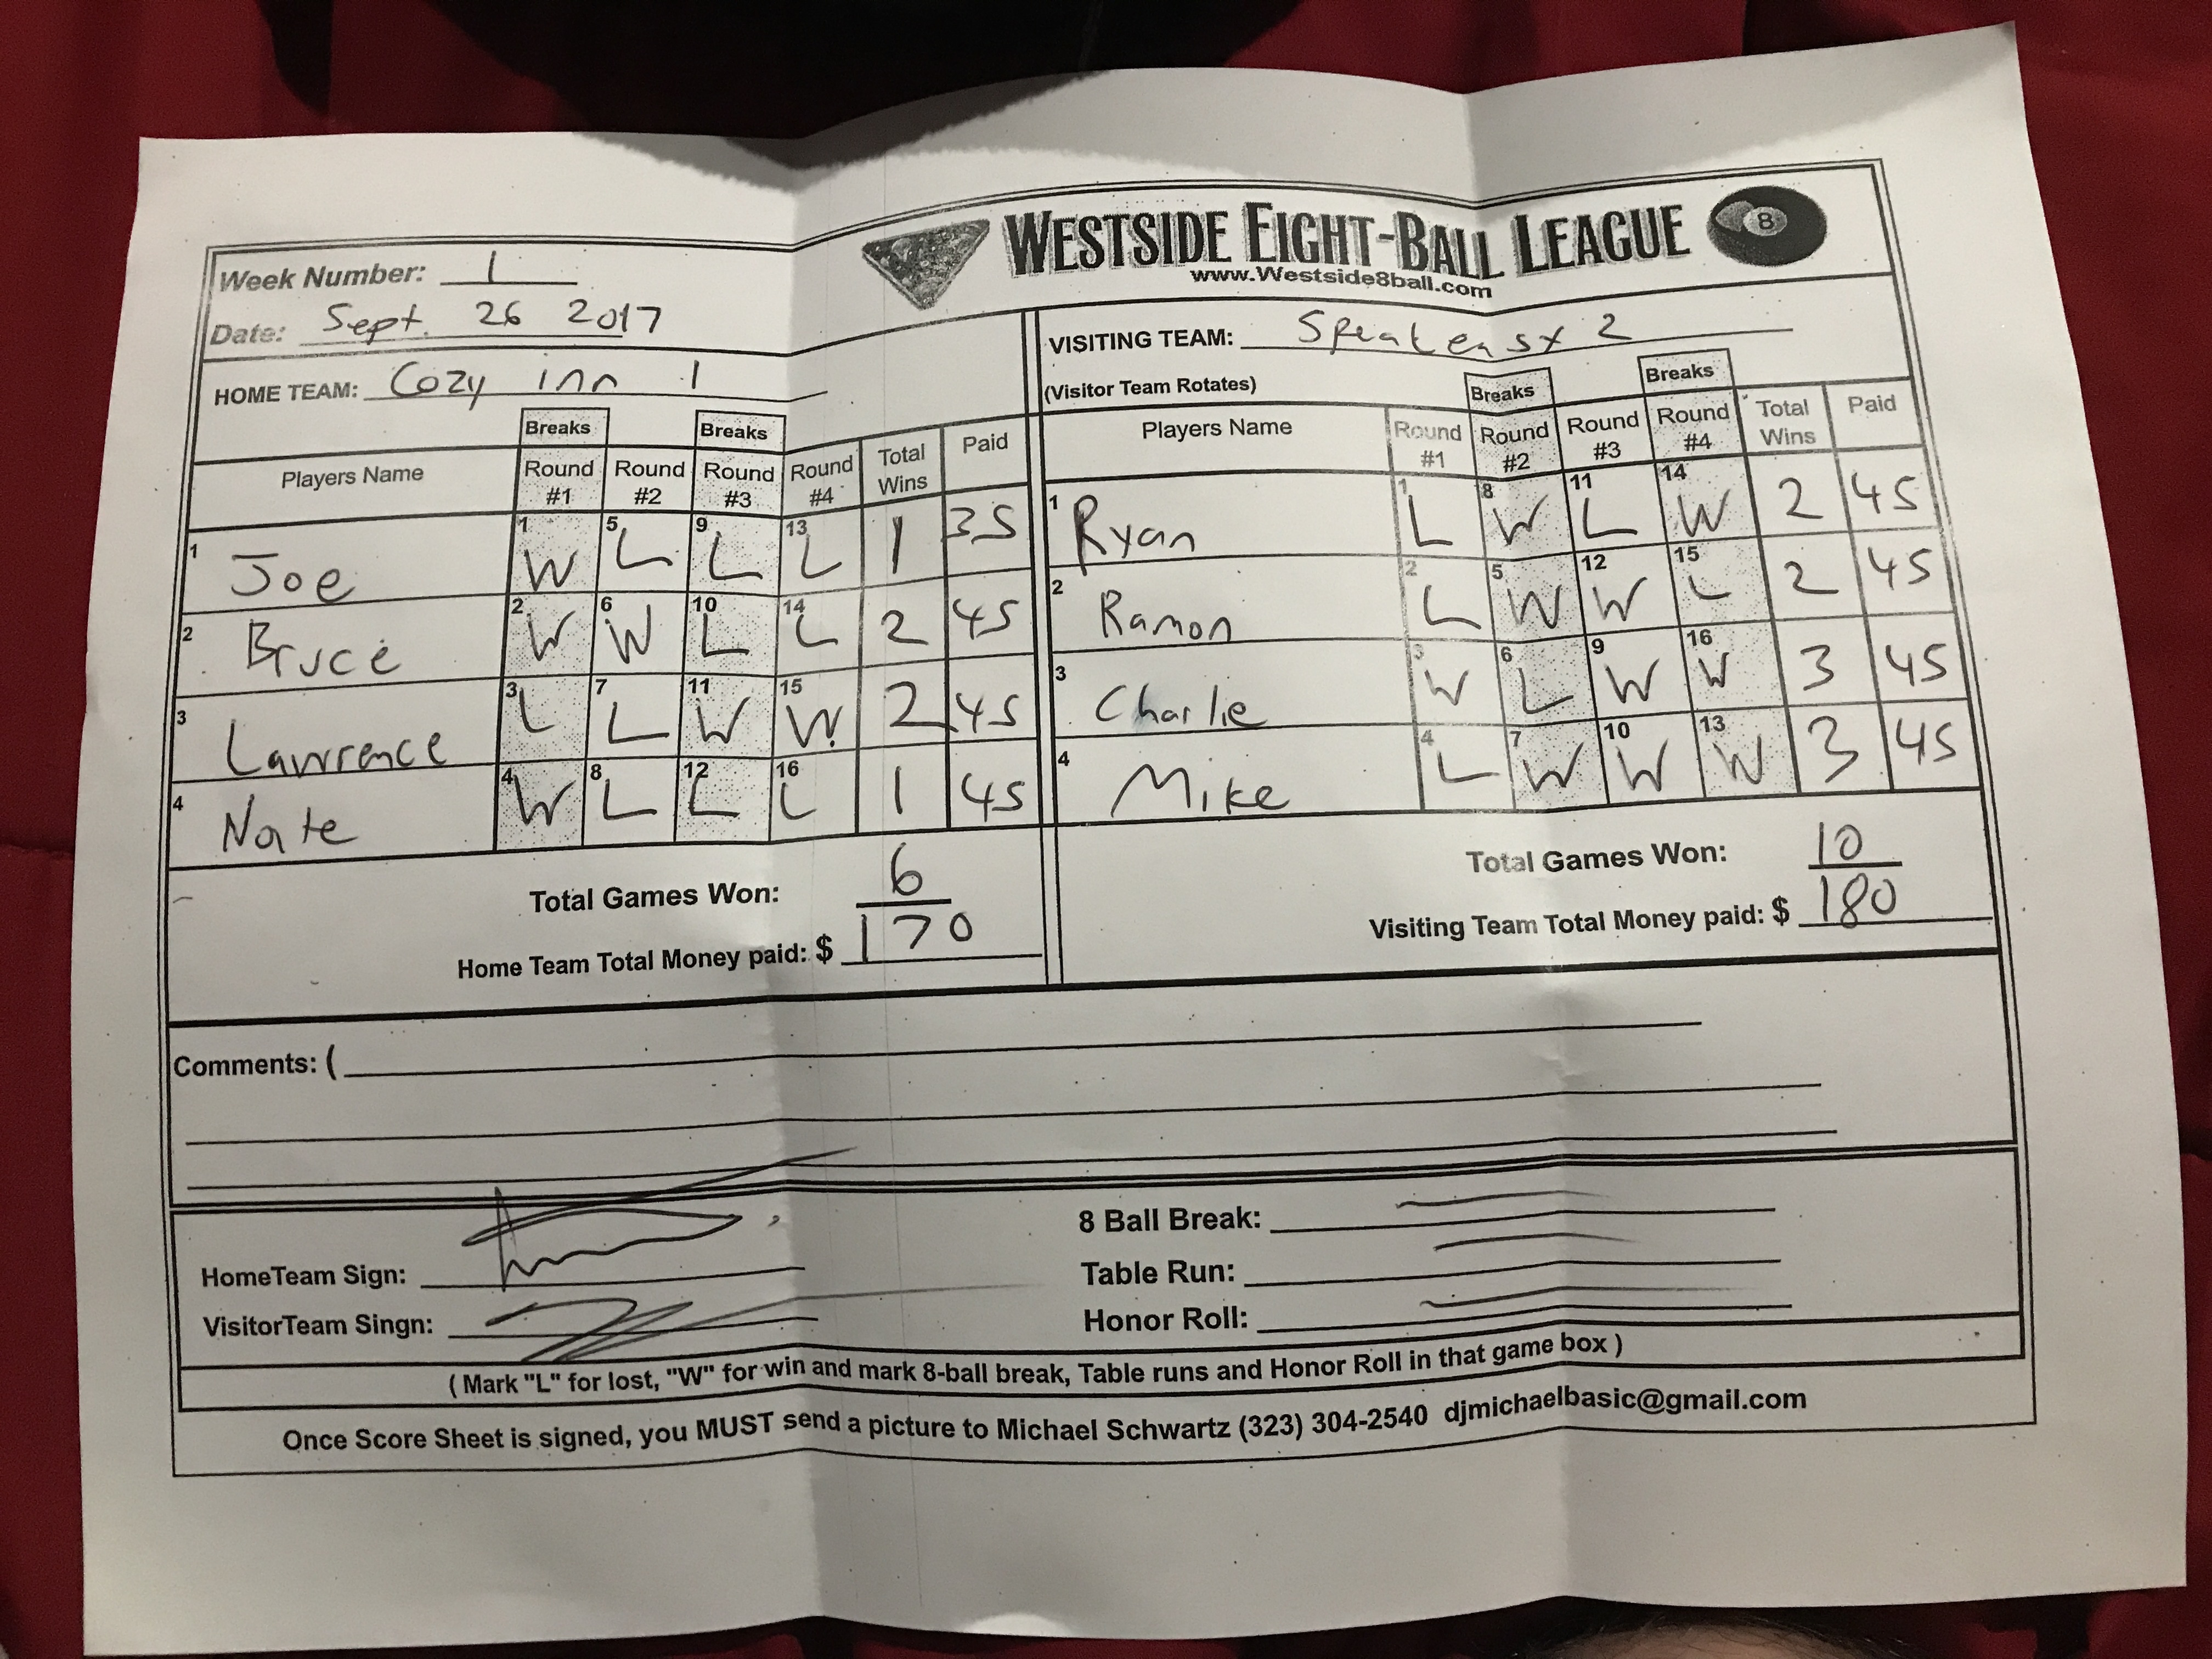 WESTSIDE EIGHT-BALL LEAGUE 8
www.Westside8ball.com
Week Number: 1
Date: Sept. 26 2017
HOME TEAM: Cozy inn 1
Breaks Breaks
Players Name Round #1 Round #2 Round #3 Round #4 Total Wins Paid
1 Joe 1 W 5 L 9 L 13 L 1 35
2 Bruce 2 W 6 W 10 L 14 L 2 45
3 Lawrence 3 L 7 L 11 W 15 W 2 45
4 Nate 4 W 8 L 12 L 16 L 1 45
Total Games Won: 6
Home Team Total Money paid: $ 170
VISITING TEAM: Speakeasy 2
(Visitor Team Rotates)
Breaks Breaks
Players Name Round #1 Round #2 Round #3 Round #4 Total Wins Paid
1 Ryan 1 L 8 W 11 L 14 W 2 45
2 Ramon 2 L 5 W 12 W 15 L 2 45
3 Charlie 3 W 6 L 9 W 16 W 3 45
4 Mike 4 L 7 W 10 W 13 W 3 45
Total Games Won: 10
Visiting Team Total Money paid: $ 180
Comments: (
HomeTeam Sign:
VisitorTeam Singn:
8 Ball Break:
Table Run:
Honor Roll:
( Mark "L" for lost, "W" for win and mark 8-ball break, Table runs and Honor Roll in that game box )
Once Score Sheet is signed, you MUST send a picture to Michael Schwartz (323) 304-2540 djmichaelbasic@gmail.com